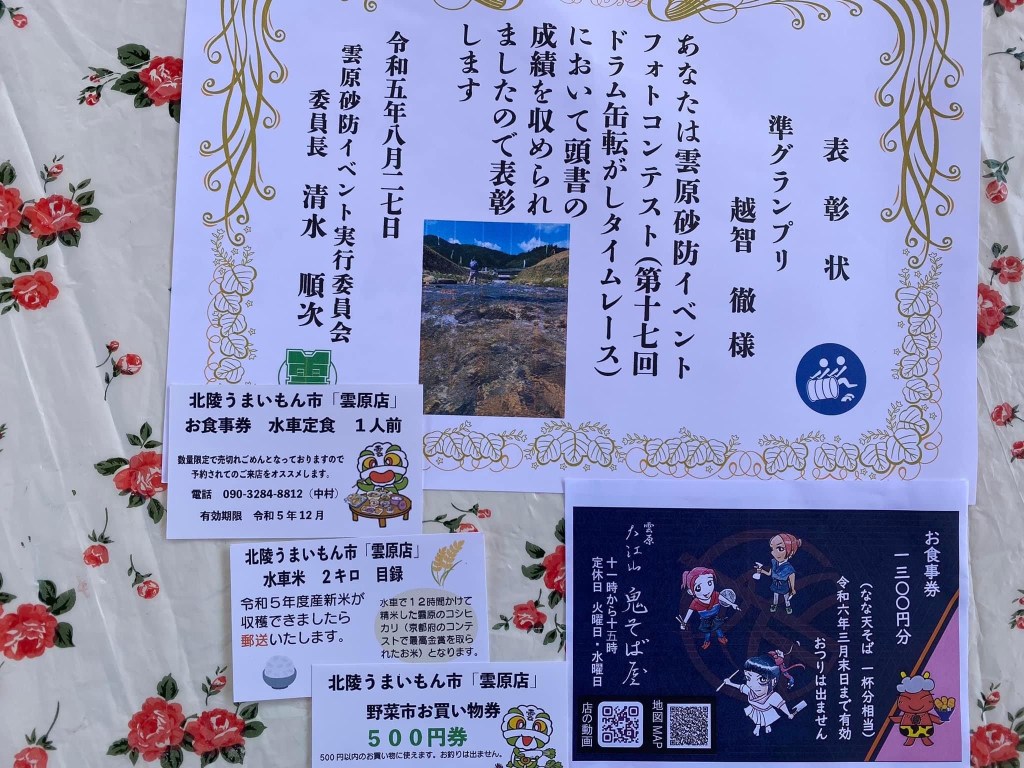 表彰状
準グランプリ
越智 徹 様
あなたは雲原砂防イベント
フォトコンテスト(第十七回
ドラム缶転がしタイムレース)
において頭書の
成績を収められ
ましたので表彰
します
令和五年八月二七日
雲原砂防イベント実行委員会
委員長 清水 順次
北陵うまいもん市「雲原店」
お食事券 水車定食 1人前
数量限定で売切れごめんとなっておりますので
予約されてのご来店をオススメします。
電話 090-3284-8812(中村)
有効期限 令和5年12月
北陵うまいもん市「雲原店」
水車米 2キロ 目録
令和5年度産新米が
収穫できましたら
郵送いたします。
水車で12時間かけて
精米した雲原のコシヒ
カリ(京都府のコンテ
ストで最高金賞を取ら
れたお米)となります。
北陵うまいもん市「雲原店」
野菜市お買い物券
500円券
500円以内のお買い物に使えます。お釣りは出ません。
お食事券
一三〇〇円分
(なな天そば 一杯分相当)
令和六年三月末日まで有効
おつりは出ません
雲原
大江山 鬼そば屋
十一時から十五時
定休日 火曜日・水曜日
地図MAP
店の動画